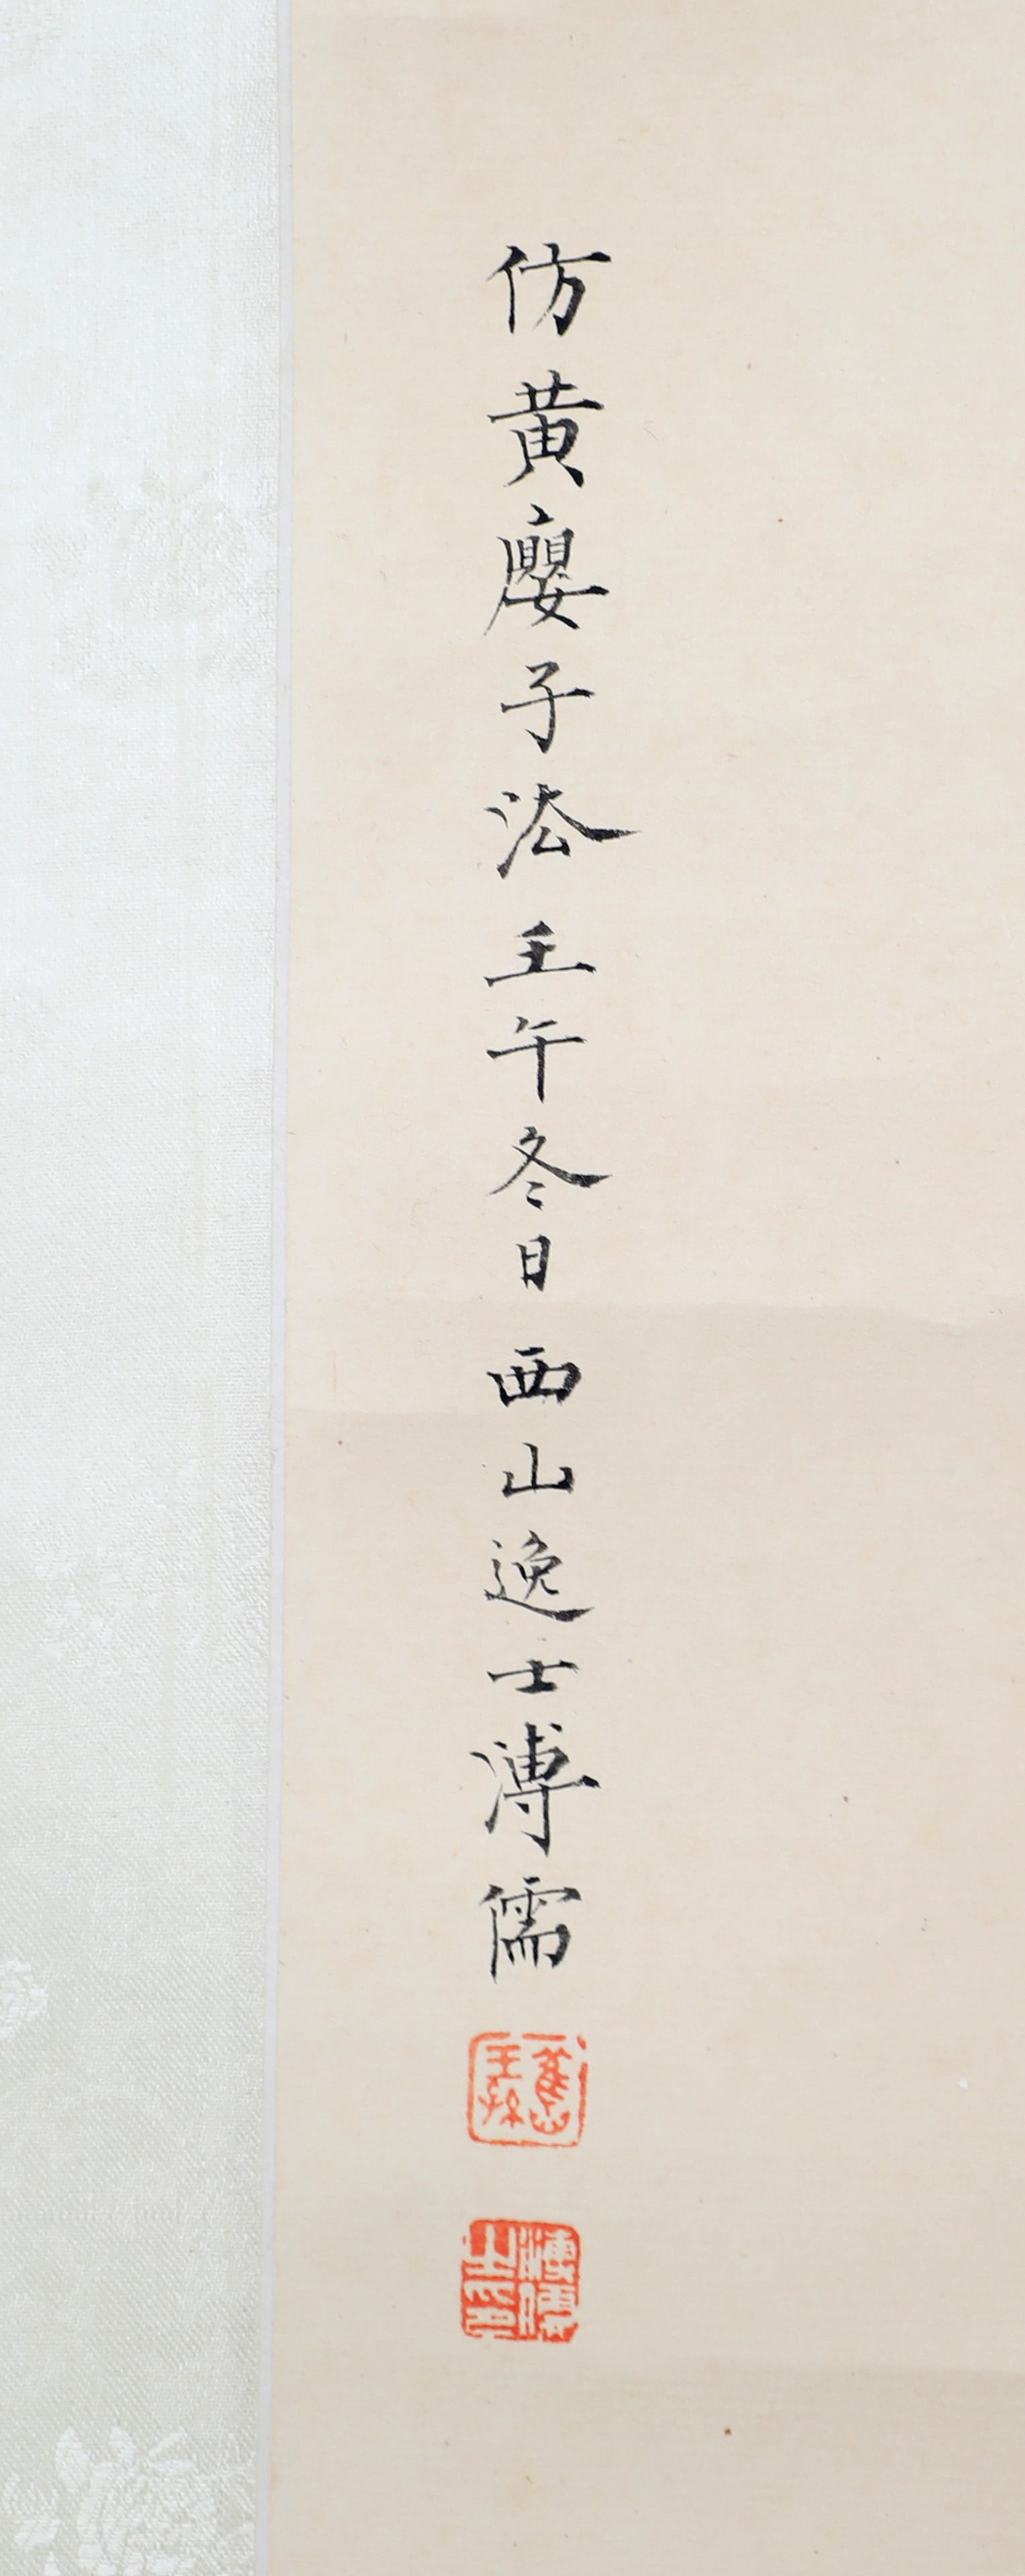 仿黄廮子法壬午冬日西山逸士溥儒
舊王孫
溥儒之印